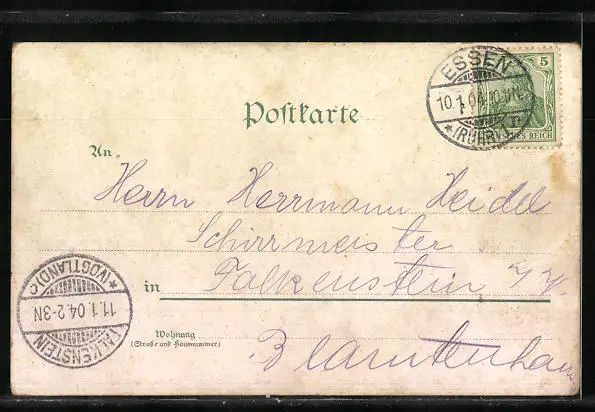 ESSEN
10.1.04.10-11N.
*(RUHR)* r
5
DEUTSCHES REICH
Postkarte
An
Herrn Herrmann Heidel
Schirrmeister
in Falkenstein i/V
Wohnung
(Straße und Hausnummer)
Beamtenhaus
FALKENSTEIN
11.1.04.2-3N
*(VOGTLAND)c